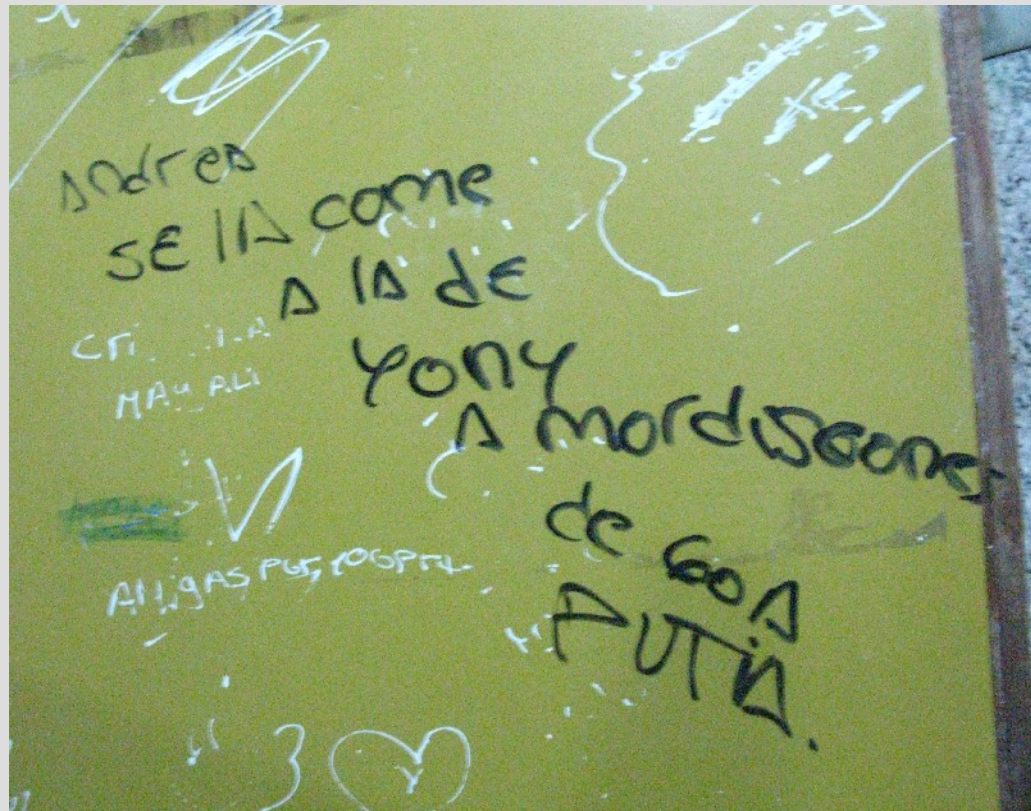 andrea
SE llA come
A lA de
yony
A mordiscones
de
PUTA.
MAY ALI
AMigAS